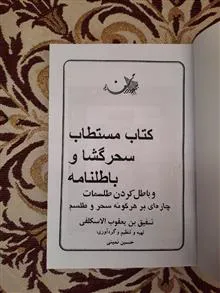 کتاب مستطاب
سحرگشا و
باطلنامه
و باطل کردن طلسمات
چاره‌ای بر هرگونه سحر و طلسم
شفیق بن یعقوب الاسکلفی
تهیه و تنظیم و گردآوری:
حسین نمینی